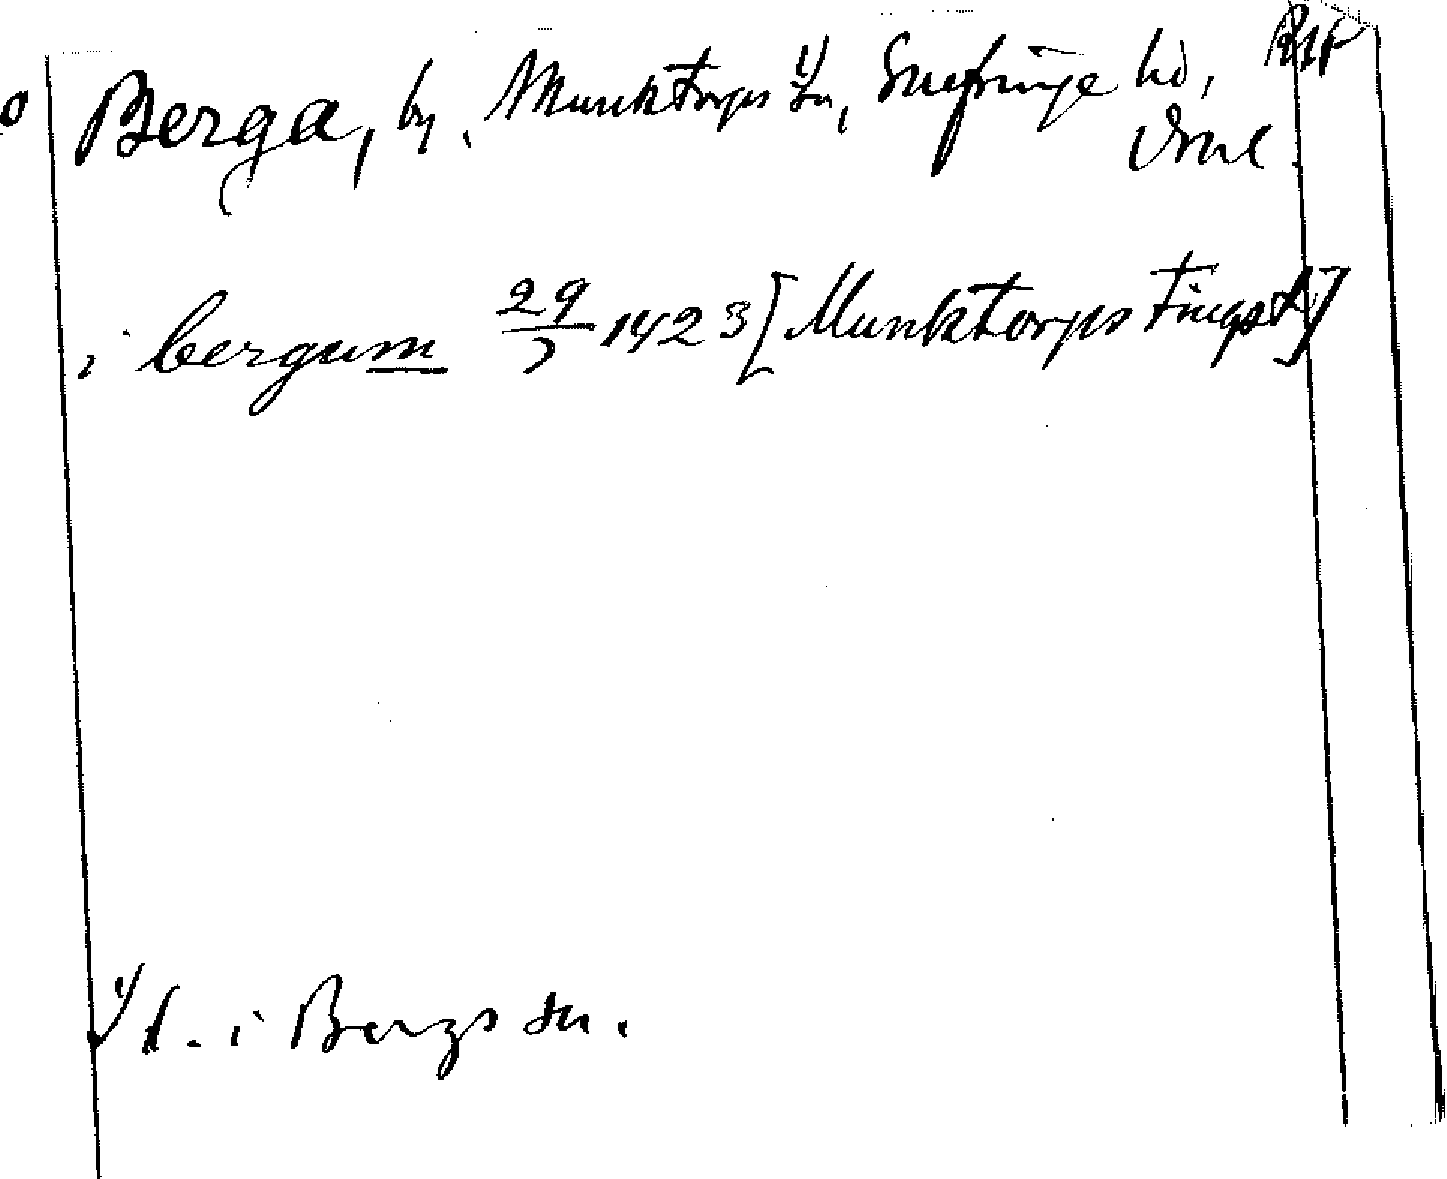 Berga, by, Munktorps 1) sn, Snefringe hd, RAP
Vsml.
i bergum 29/3 1423 [Munktorps tingst]
1) l. i Bergs sn.